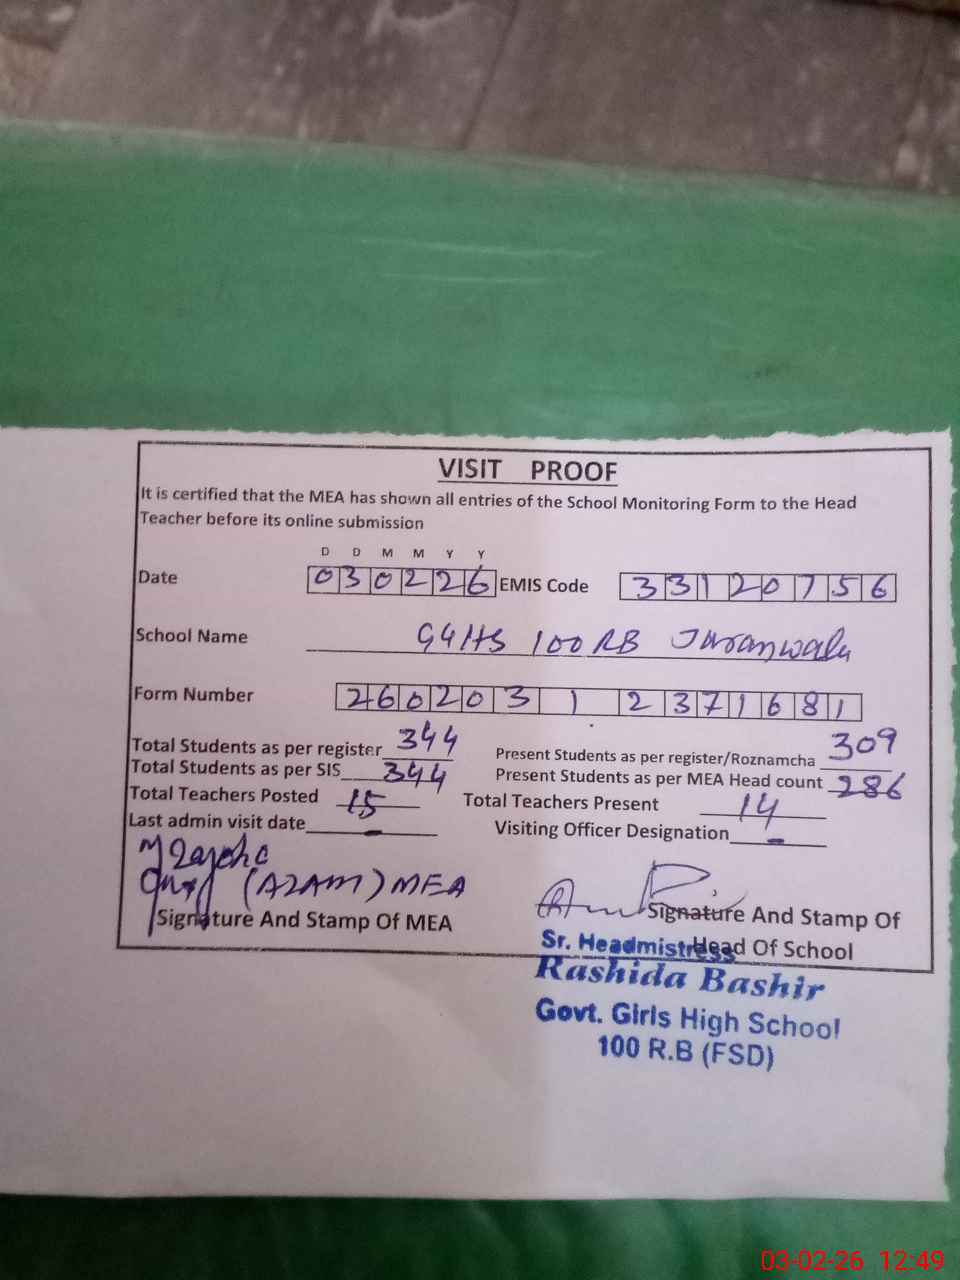 VISIT PROOF
It is certified that the MEA has shown all entries of the School Monitoring Form to the Head
Teacher before its online submission
D D M M Y Y
Date 030226 EMIS Code 33120756
School Name GGHS 100 RB Jaranwala
Form Number 260203 1 2371681
Total Students as per register 344 Present Students as per register/Roznamcha 309
Total Students as per SIS 344 Present Students as per MEA Head count 286
Total Teachers Posted 15 Total Teachers Present 14
Last admin visit date - Visiting Officer Designation -
(AZAM) MEA
Signature And Stamp Of MEA Signature And Stamp Of
Head Of School
Sr. Headmistress
Rashida Bashir
Govt. Girls High School
100 R.B (FSD)
03-02-26 12:49